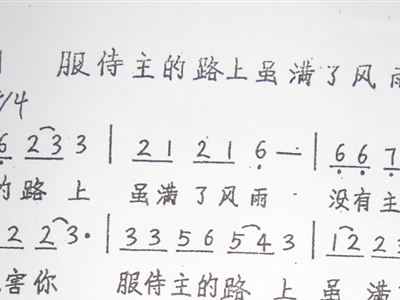 服侍主的路上虽满了风雨
/4
6 2 3 3 | 2 1 2 1 6 — | 6 6 7
的路上 虽满了风雨 没有主
2 2 2 3· | 3 3 5 6 5 4 3 | 1 2 2 3
害你 服侍主的路上虽满